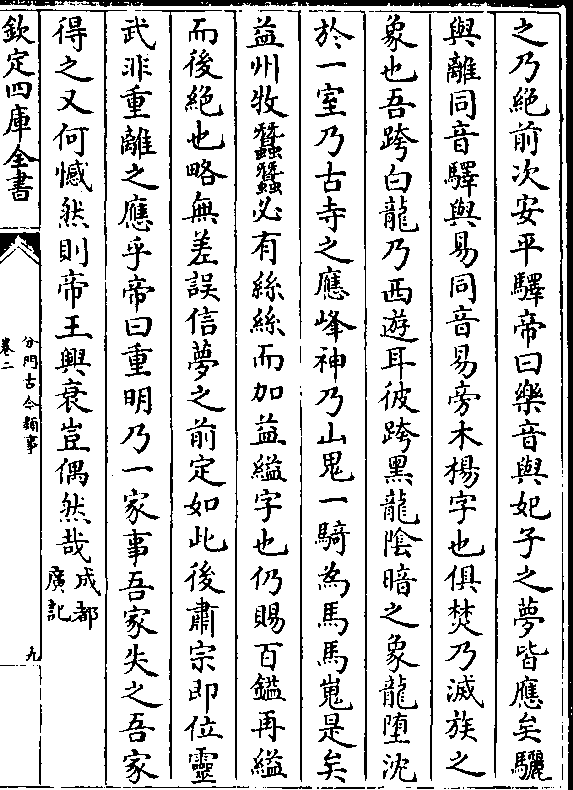 之乃絶前次安平驛帝曰樂音與妃子之夢皆應矣驪
與離同音驛與易同音易旁木楊字也俱焚乃滅族之
象也吾跨白龍乃西遊耳彼跨黑龍陰暗之象龍堕沈
於一室乃古寺之應峰神乃山鬼一騎為馬馬嵬是矣
益州牧蠶蠶必有絲絲而加益縊字也仍賜百鎰再縊
而後絶也略無差誤信夢之前定如此後肅宗即位靈
武非重離之應乎帝曰重明乃一家事吾家失之吾家
得之又何憾然則帝王興衰豈偶然哉成都
廣記
欽定四庫全書
分門古今類事
卷二
九